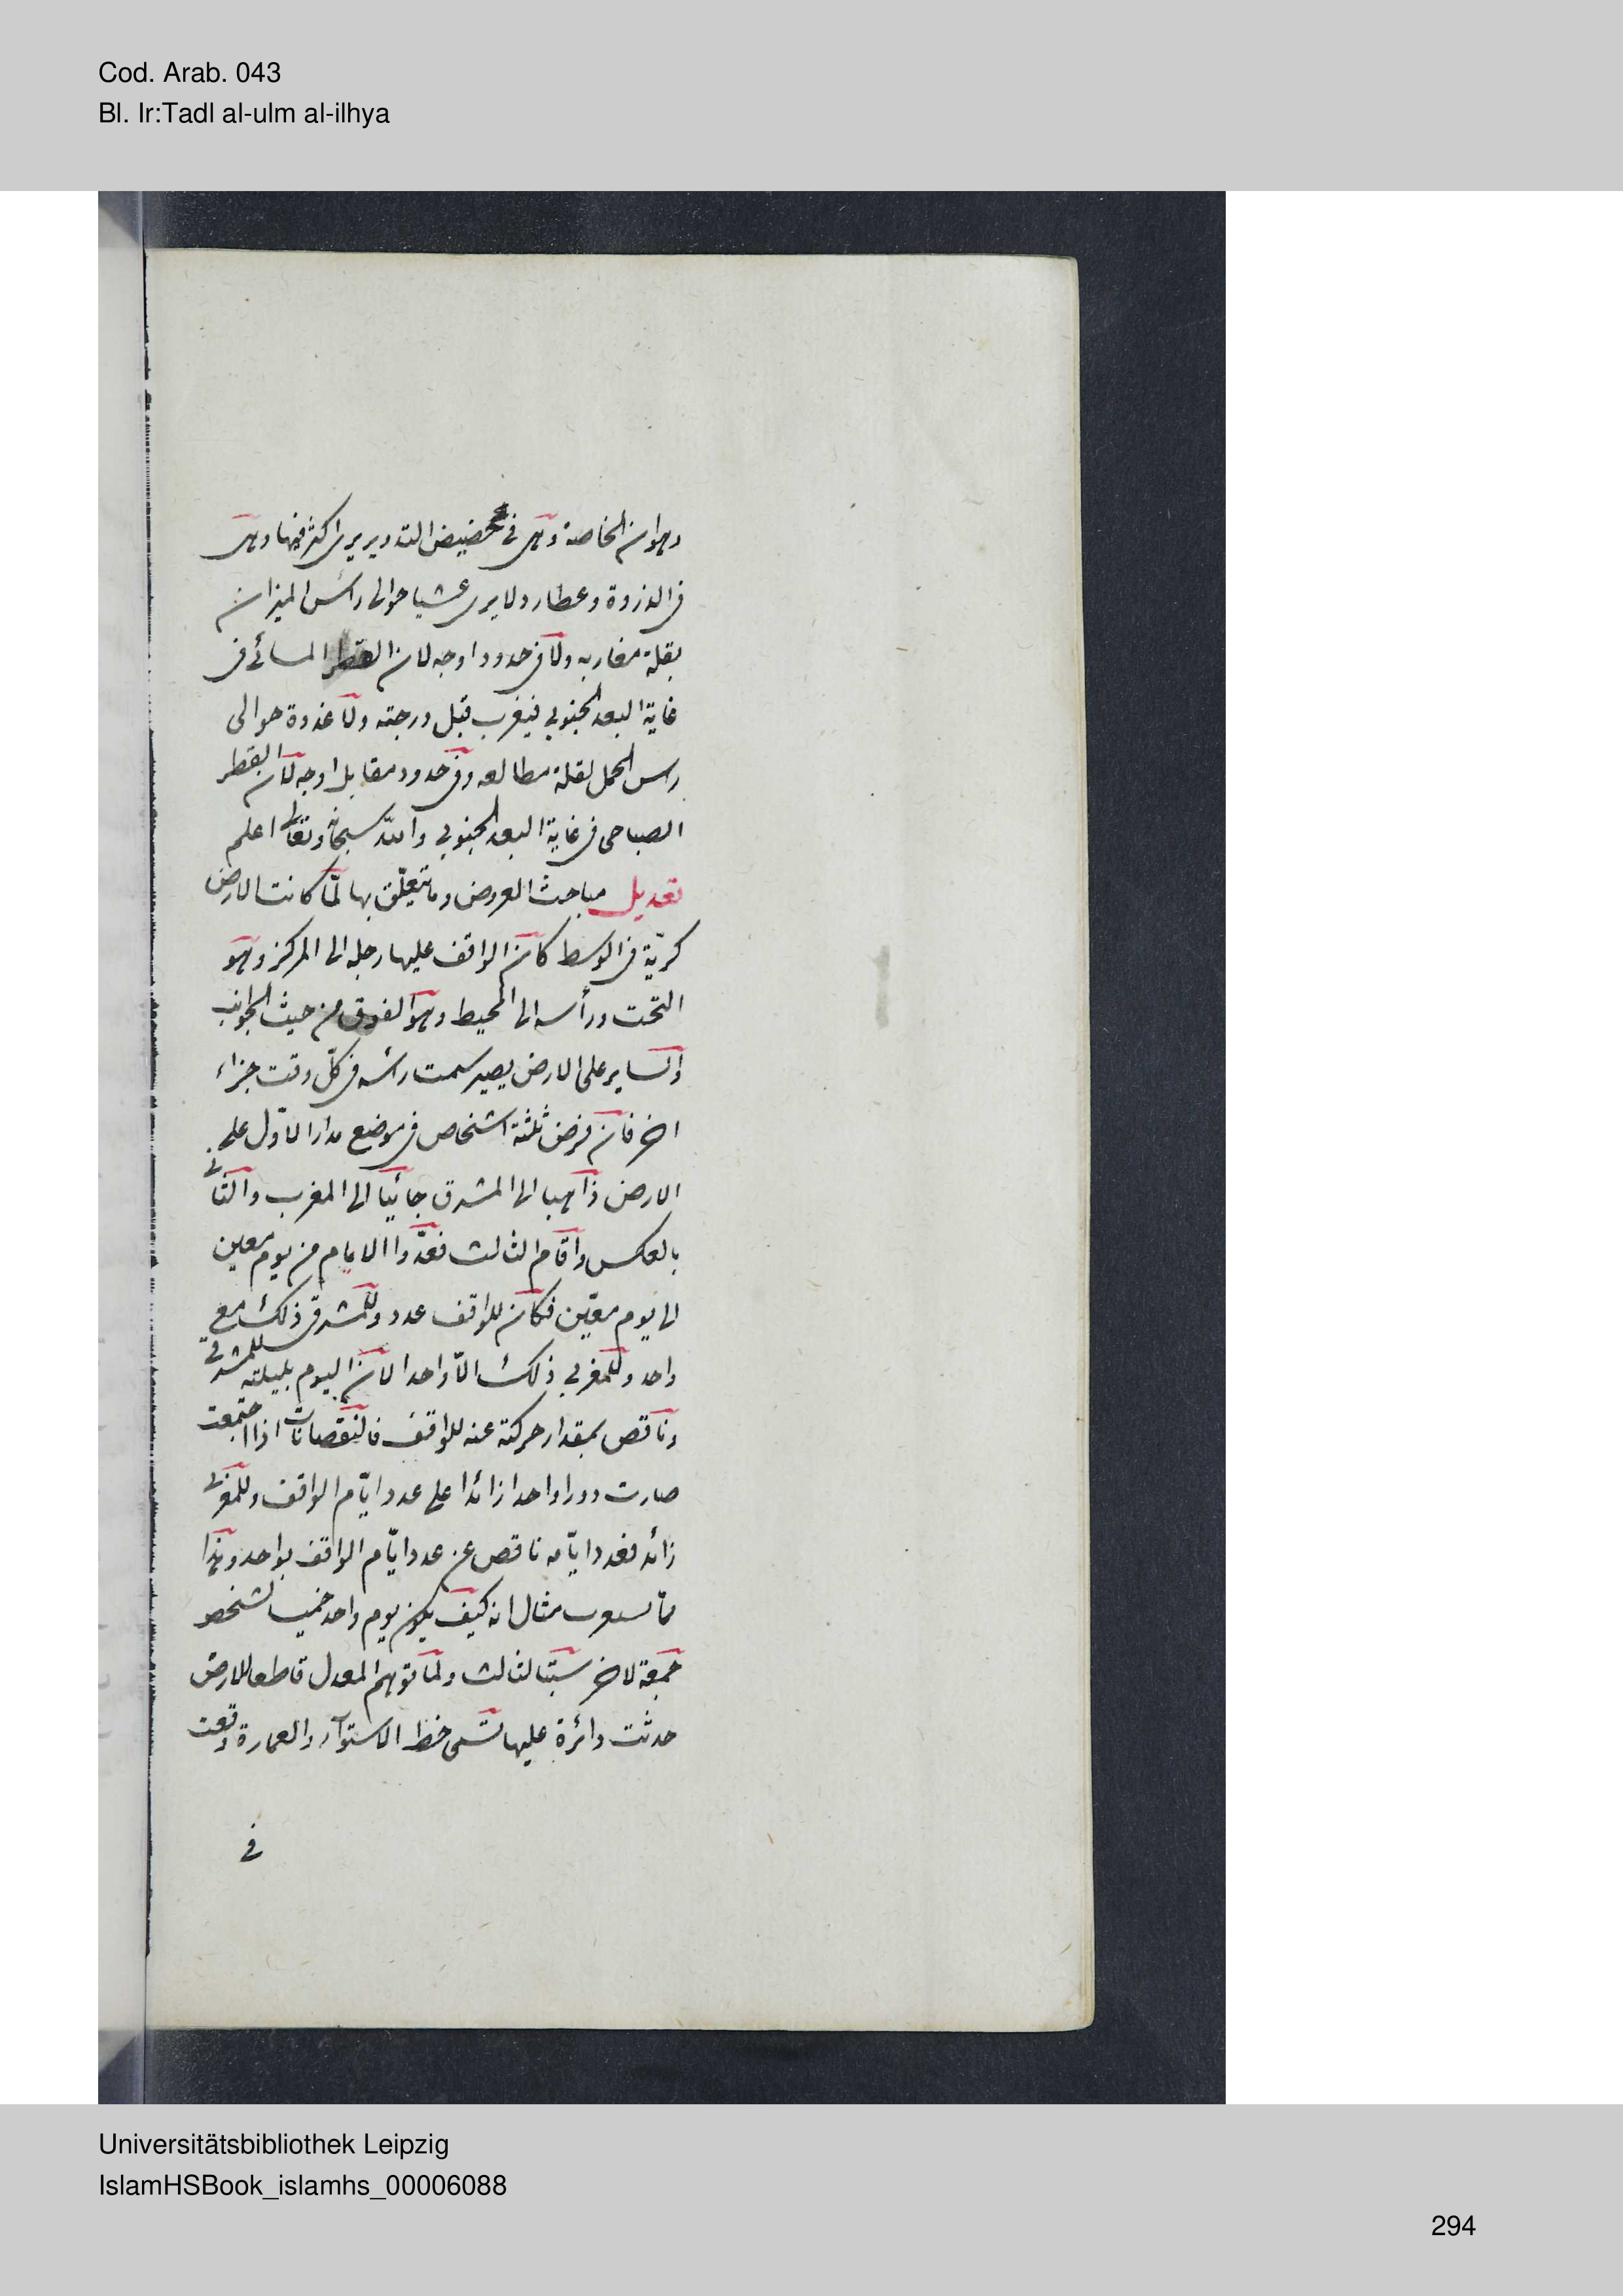 Cod. Arab. 043
Bl. Ir:Tadl al-ulm al-ilhya
وهوان الخاصة وهى فى حضيض التدوير يرى اكثر فيها وهى
فى الذروة وعطارد لا يرى عشيا حوالى رأس الميزان
بقلة مغاربه ولا فى حدود اوجه لان القطر المسائى فى
غاية البعد الجنوبى فيغرب قبل درجته ولا غدوة حوالى
رس الحمل لقلة مطالعه وفى حدود مقابل اوجه لان القطر
الصباحى فى غاية البعد الجنوبى والله سبحانه وتعالى اعلم
تعديل مباحث العروض وما يتعلّق بها لمّا كانت الارض
كريّة فى الوسط كان الواقف عليها رجله الى المركز وهو
التحت ورأسه الى المحيط وهو الفوق من حيث الجوانب
والساير على الارض يصير سمت رأسه فى كلّ وقت جزاء
اخر فان فرض ثلثة اشخاص فى موضع مدار الاوّل على
الارض ذاهبا الى المشرق جائيا الى المغرب والثانى
بالعكس واقام الثالث فعدّوا الايام من يوم معين
الى يوم معيّن فكان للواقف عدد وللمشرقى ذلك مع
واحد وللمغربى ذلك الّا واحدا لان اليوم بليلته للمشرقى
وناقص بمقدار حركته عنه للواقف فالنقصانات اذا اجتمعت
صارت دورا واحدا زائدا على عدد ايّام الواقف وللمغربى
زائد فعدد ايّامه ناقص عن عدد ايّام الواقف بواحد وبهذا
مثال انه كيف يكون يوم واحد خميسا لشخص
جمعة لاخر سبتا لثالث ولما توهم المعدل قاطعا للارض
حدثت دائرة عليها تسمى خط الاستوآء والعمارة وقعت
فى
Universitätsbibliothek Leipzig
IslamHSBook_islamhs_00006088
294